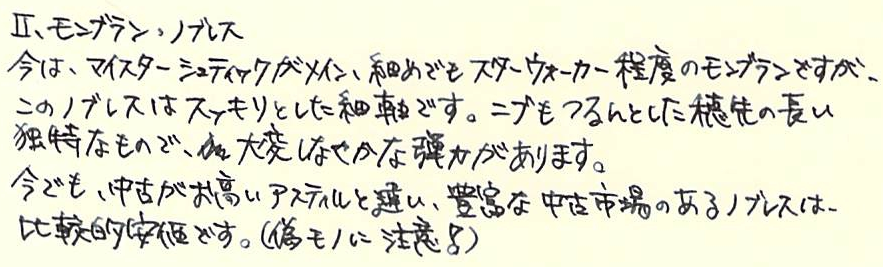 Ⅱ、モンブラン・ノブレス
今は、マイスターシュティックがメイン、細めでもスターウォーカー程度のモンブランですが、
このノブレスはスッキリとした細軸です。ニブもつるんとした穂先の長い
独特なもので、大変しなやかな弾力があります。
今でも、中古がお高いアスティルと違い、豊富な中古市場のあるノブレスは、
比較的安価です。(偽モノに注意!)